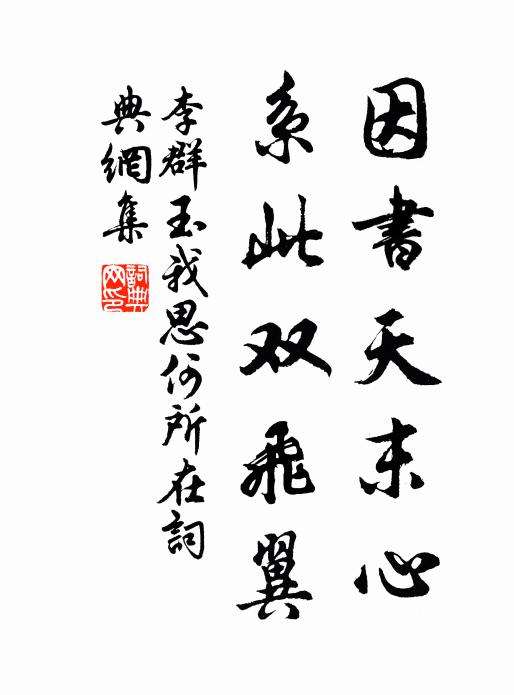 因書天末心
系此双飛翼
李群玉我思何所在詞
典網集
詞典網印